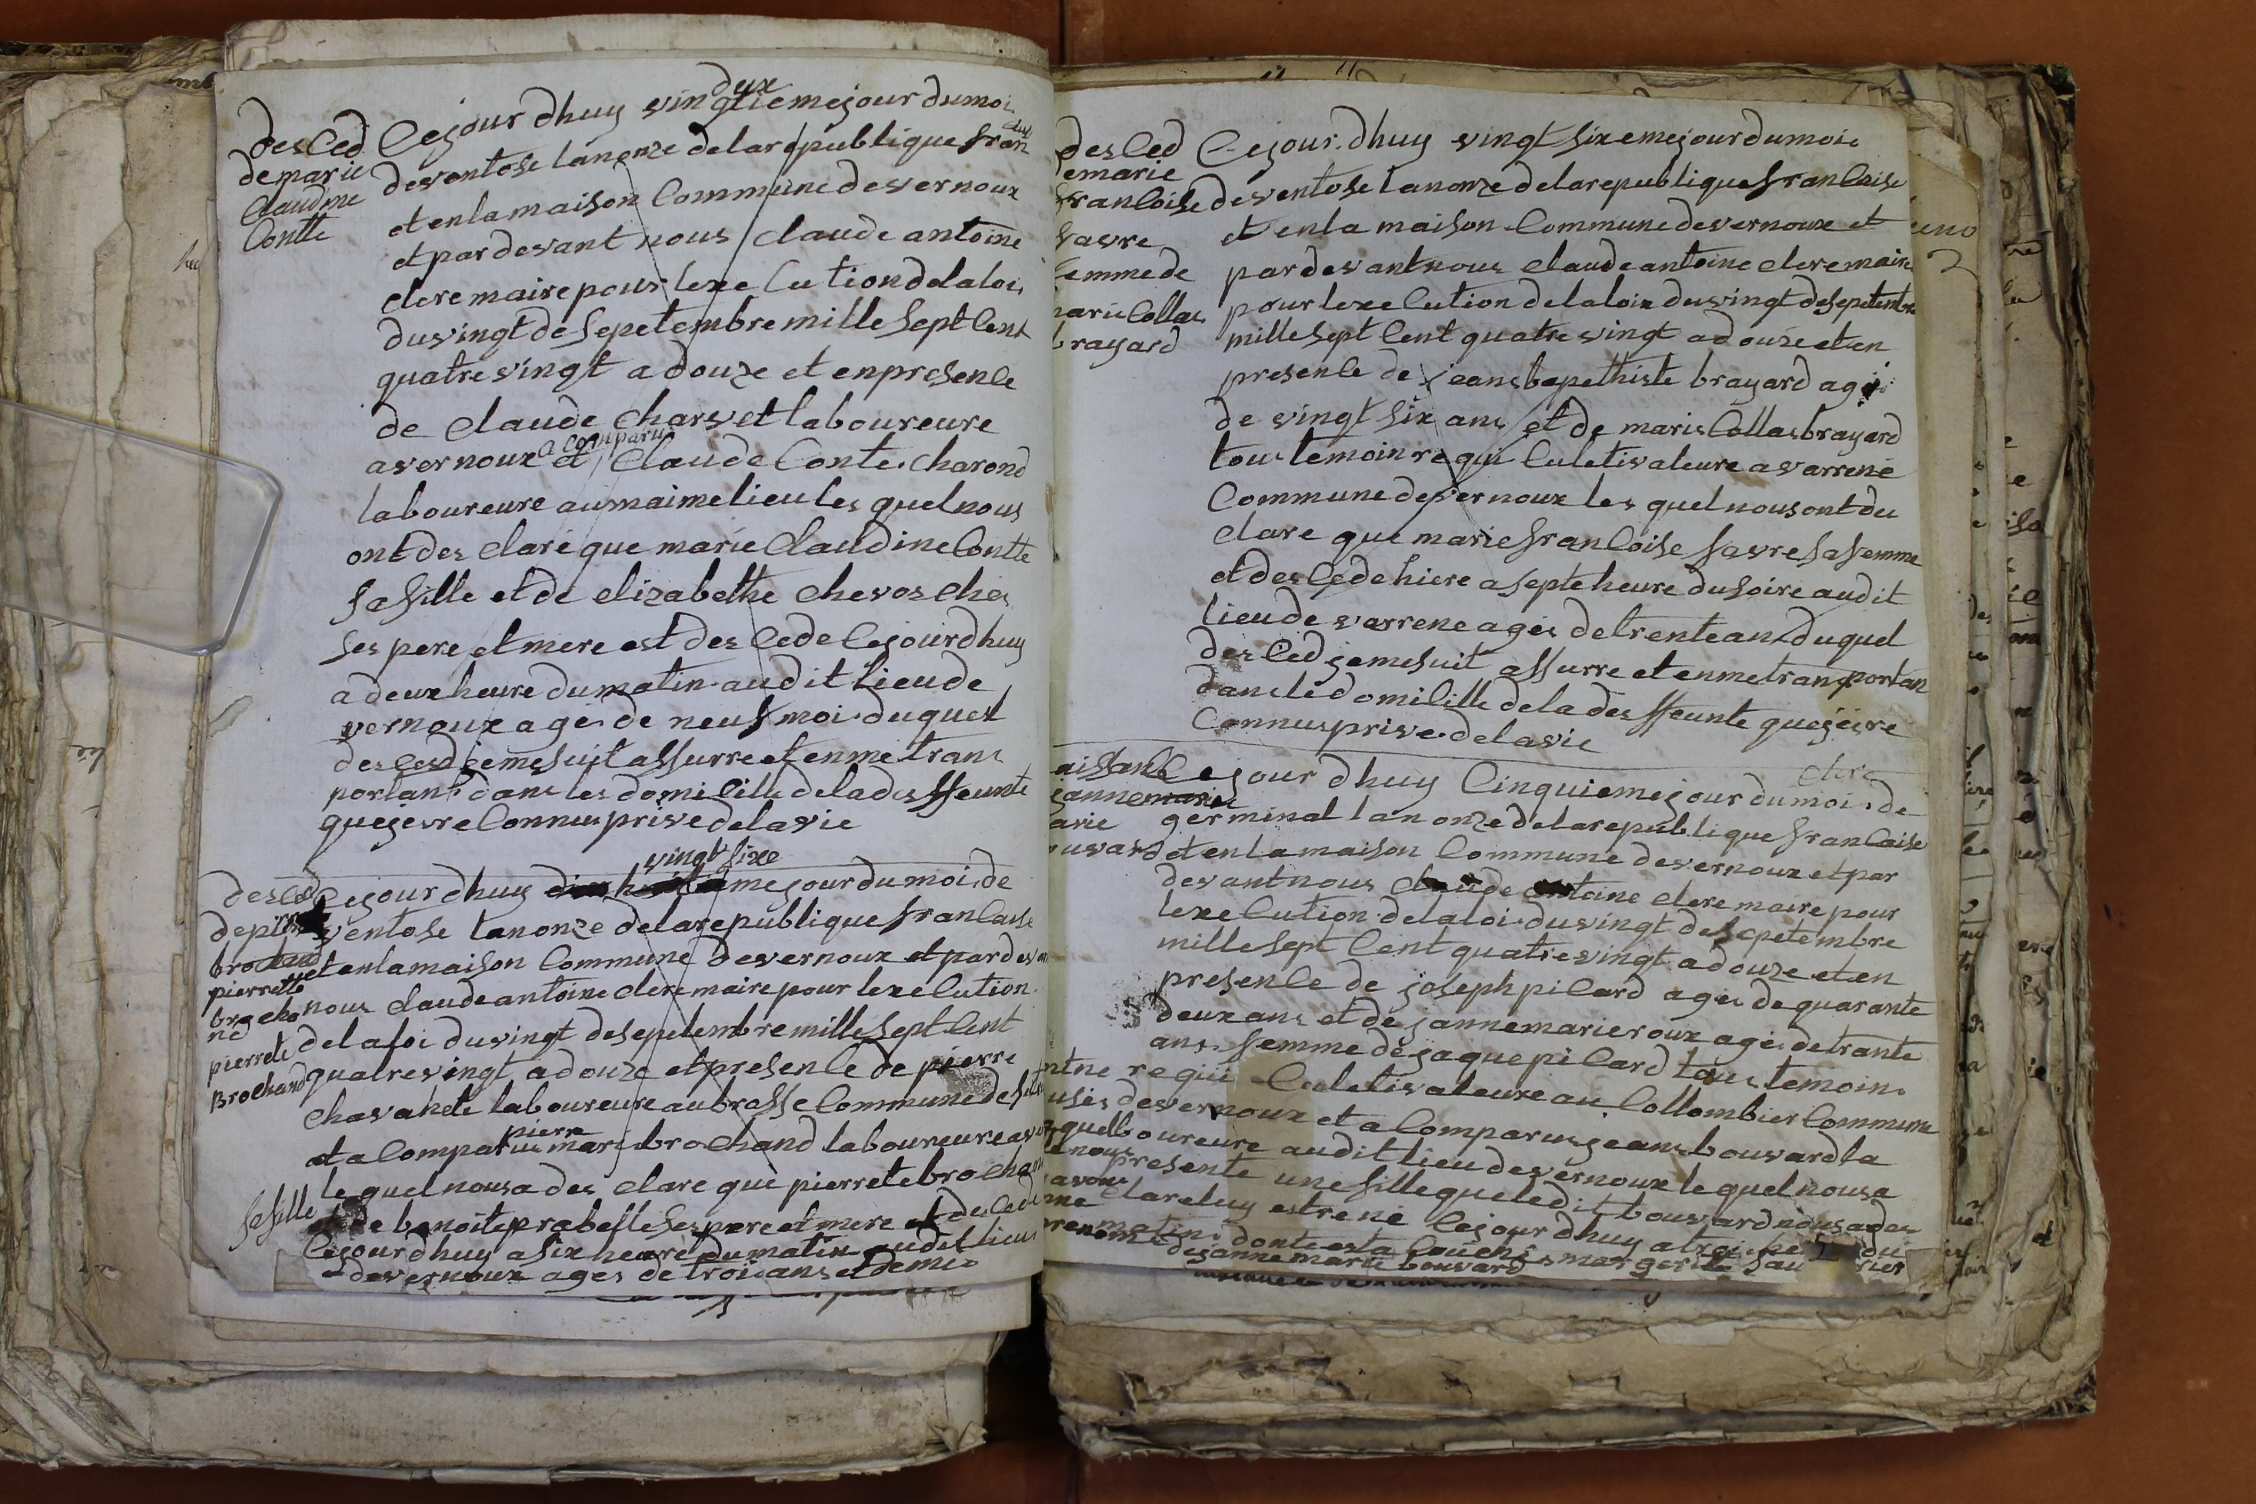 des Ced
de marie
Claudine
Contte
Ce jour dhuy vingtieme deux jour du moi
de ventose lan onze de la republique fran
et en la maison Commune de vernoux
et par devant nous Claude antoine
clere maire pour lexe Cution de la loi
du vingt de Sepetembre mille Sept Cent
quatre vingt a douze et en presen Ce
de Claude Charvet laboureure
a vernoux et a comparu Claude Conte charond
laboureure au maime lieu les quel nous
ont des claré que marie Claudine Contte
Sa fille et de elizabethe chevos chés
Ses pere et mere est des Cede Ce jour dhuy
a deux heure du matin audit Lieu de
vernoux agé de neuf moi duquel
des Ced je me suit assurre et en me trans
portant dans les domi Cille de la des ffeunte
que jei vre Connus privé de la vie
des Ced
de pierre
brochand
pierrette
brocha
nd
pierrete
Brochand
Ce jour dhuy vingt sixe me jour du moi de
ventose lan onze de la republique fran Caise
et en la maison Commune de vernoux et par dev
nous claude antoine clere maire pour lexe Cution
de la loi du vingt de sepetembre mille Sept Cent
quatre vingt a douze et presen Ce de pierre
chavanete laboureure au brosse Commune de
et a Comparu pierre marie brochand laboureure a
le quel nous a des claré que pierrete brochan
sa fille et de benoite prabelle Ses pere et mere et des Cede
Ce jour dhuy a six heure du matin audit lieu
de vernoux ages de troi ans et demi
des Ced
de marie
fran Coise
favre
femme de
marie Collas
brayard
Ce jour dhuy vingt sixeme jour du moi
de ventose lan onze de la republique fran Caise
et en la maison Commune de vernoux et
par devant nous claude antoine clere maire
pour lexe Cution de la loix du vingt de Sepetembre
mille Sept Cent quatre vingt a douze et en
presen Ce de jean bapethiste brayard agé
de vingt six ans et de marie Collas brayard
tous temoin requi Culetivateure a varrene
Commune de vernoux les quel nous ont du
claré que marie fran Coise favre sa femme
et des Cede hiere a septe heure du soire audit
lieu de varrene agés de trente ans duquel
des Ced je me suit assurre et en me trans portan
dans le domi Cille de la des ffeunte que jei vre
Connus privé de la vie
clere
naissan Ce
jannemarie
marie
bouvard
Ce jour dhuy Cinquieme jour du moi de
germinal lan onze de la republique fran Caise
et en la maison Commune de vernoux et par
devant nous claude antoine clere maire pour
lexe Cution de la loi du vingt de Sepetembre
mille Sept Cent quatre vingt a douze et en
presen Ce de joseph pi Card agés de quarante
deux ans et de jannemarie roux agé de trante
ans femme de jaque pi Card tous temoin
requi Culetivateure au Collombier Commune
de vernoux et a Comparus jean bouvard la
boureure audit lieu de vernoux le quel nous a
presenté une fille que ledit bouvard nous a des
claré luy estre né Ce jour dhuy a troi he du
matin
de jannemarie bouvard